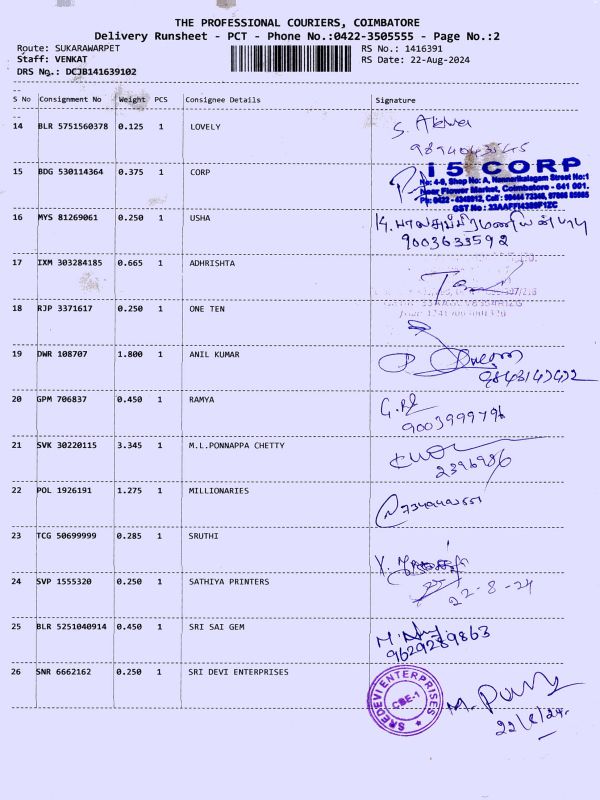 THE PROFESSIONAL COURIERS, COIMBATORE
Delivery Runsheet - PCT - Phone No.:0422-3505555 - Page No.:2
Route: SUKARAWARPET RS No.: 1416391
Staff: VENKAT RS Date: 22-Aug-2024
DRS No.: DCJB141639102
S No Consignment No Weight PCS Consignee Details Signature
14 BLR 5751560378 0.125 1 LOVELY
15 BDG 530114364 0.375 1 CORP
i 5 CORP
Near Flower Market, Coimbatore - 641 001.
16 MYS 81269061 0.250 1 USHA
9003633592
17 IXM 303284185 0.665 1 ADHRISHTA
18 RJP 3371617 0.250 1 ONE TEN
19 DWR 108707 1.800 1 ANIL KUMAR
20 GPM 706837 0.450 1 RAMYA
9003999796
21 SVK 30220115 3.345 1 M.L.PONNAPPA CHETTY
2396986
22 POL 1926191 1.275 1 MILLIONARIES
23 TCG 50699999 0.285 1 SRUTHI
24 SVP 1555320 0.250 1 SATHIYA PRINTERS
22-8-24
25 BLR 5251040914 0.450 1 SRI SAI GEM
9629289863
26 SNR 6662162 0.250 1 SRI DEVI ENTERPRISES
SREDEVI ENTERPRISES
CBE-1
22/8/24.